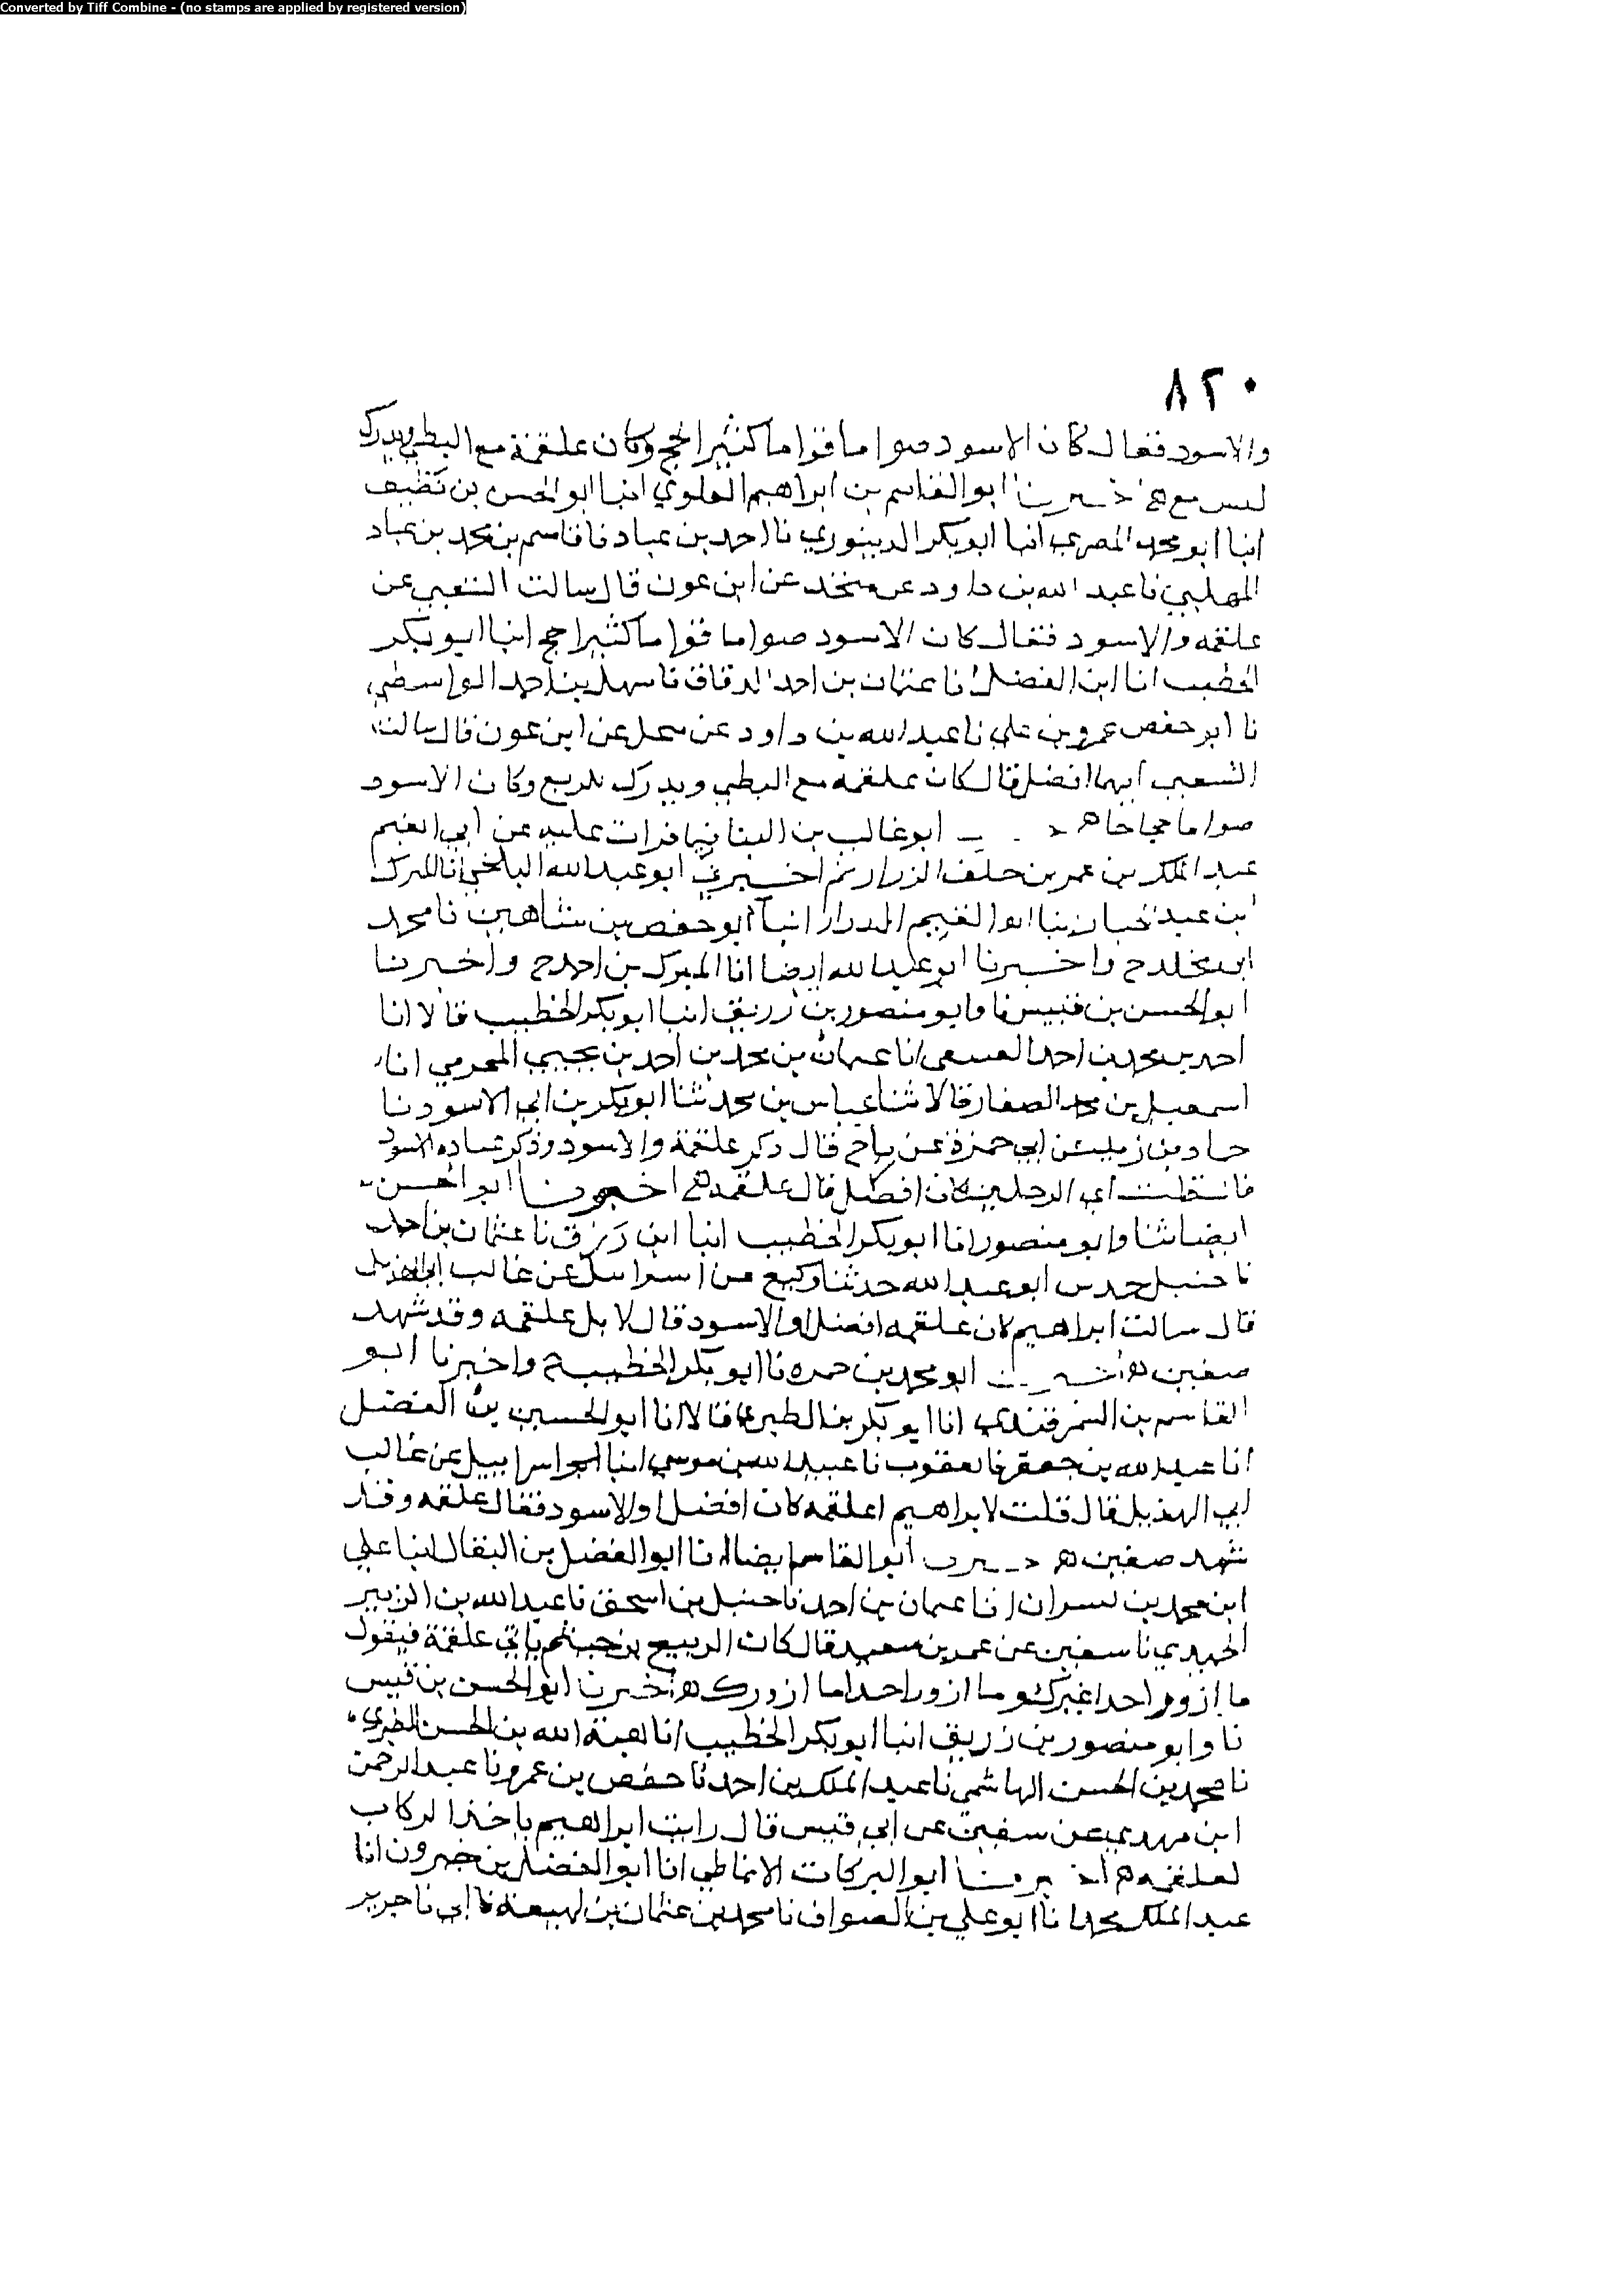 Converted by Tiff Combine - (no stamps are applied by registered version)
٨٢٠
والاسود فقال كان الاسود صواما قواما كثير الحج وكان علقمة مع البطي ويدرك
ابو القاسم بن ابراهيم العلوي انبا ابو الحسن بن نظيف
انبا ابو محمد المصري انبا ابو بكر الدينوري نا احمد بن عباد نا قاسم بن محمد بن عباد
المهلبي نا عبد الله بن داود عن عن ابن عون قال سالت الشعبي عن
علقمه والاسود فقال كان الاسود صواما قواما كثير الحج انبا ابو بكر
الخطيب انا ابن الفضل انا عثمان بن احمد الدقاق نا سهل بن احمد الواسطي
نا ابو حفص عمرو بن علي نا عبد الله بن داود عن عن ابن عون قال سالت
الشعبي ايهما افضل قال كان علقمه مع البطي ويدرك السريع وكان الاسود
صواما حجاجا ه ابو غالب بن البنا فيما قرات عليه عن ابي الغنيم
عبد الملك بن عمر بن خلف الرزاز ثم اخبرني ابو عبد الله البلخي انا المبرك
ابن عبد انبا ابو حفص بن شاهين نا محمد
ابن مخلد ح واخبرنا ابو عبد الله ايضا انا المبرك بن احمد ح واخبرنا
ابو الحسن بن قبيس نا وابو منصور بن زريق انبا ابو بكر الخطيب قالا انا
احمد بن محمد بن احمد انا عثمان بن محمد بن احمد بن يحيى المحرمي انا
اسمعيل بن محمد الصفار قالا ثنا عباس بن محمد ثنا ابو بكر بن ابي الاسود نا
عن ابي حمزة عن رباح قال ذكر علقمة والاسود وذكر عباده الاسود
اي الرجلين كان افضل قال علقمه ه اخبرنا ابو الحسن
ايضا ثنا وابو منصور انا ابو بكر الخطيب انبا ابن رزق نا عثمان بن احمد
نا حنبل ابو عبد الله حدثنا وكيع عن اسراسل عن غالب ابي الهذيل
قال سالت ابراهيم كان علقمه افضل او الاسود قال لا بل علقمه وقد شهد
صفين ه ابو محمد بن حمزه نا ابو بكر الخطيب ح واخبرنا ابو
القاسم بن السمرقندي انا ابو بكر بن الطبري قالا انا ابو الحسين بن الفضل
انا عبد الله بن جعفر نا يعقوب نا عبيد الله بن موسى انبا اسراييل عن غالب
ابي الهذيل قال قلت لابراهيم اعلقمه كان افضل او الاسود فقال علقمه وقد
شهد صفين ه ابو القاسم ايضا انا ابو الفضل بن البقال انبا علي
ابن محمد بن بسران انا عثمان بن احمد نا حنبل بن اسحق نا عبد الله بن الزبير
الحميدي نا سفين عن عمر بن سعيد قال كان الربيع بن خيثم ياتي علقمة فيقول
ما ازور احدا غيرك وما ازور احدا ما ازورك ه اخبرنا ابو الحسن بن قبيس
نا وابو منصور بن زريق انبا ابو بكر الخطيب انا هبة الله بن الحسن الطبري
نا محمد بن الحسن الهاشمي نا عبد الملك بن احمد نا حفص بن عمرو نا عبد الرحمن
ابن مهدي عن سفين عن ابي قيس قال رايت ابراهيم ياخذ الركاب
لعلقمه ه اخبرنا ابو البركات الانماطي انا ابو الفضل بن خيرون انا
عبد الملك بن محمد انا ابو علي بن الصواف نا محمد بن عثمان بن نا ابي نا جرير